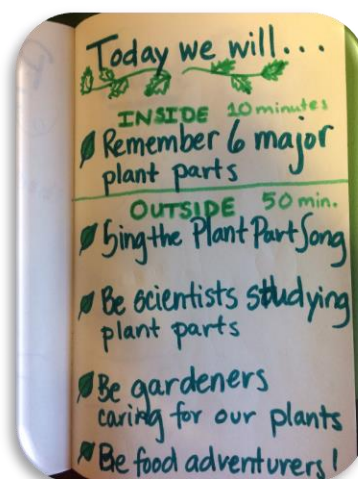 Today we will...
INSIDE 10 minutes
Remember 6 major
plant parts
OUTSIDE 50 min.
Sing the Plant Part Song
Be scientists studying
plant parts
Be gardeners
caring for our plants
Be food adventurers!